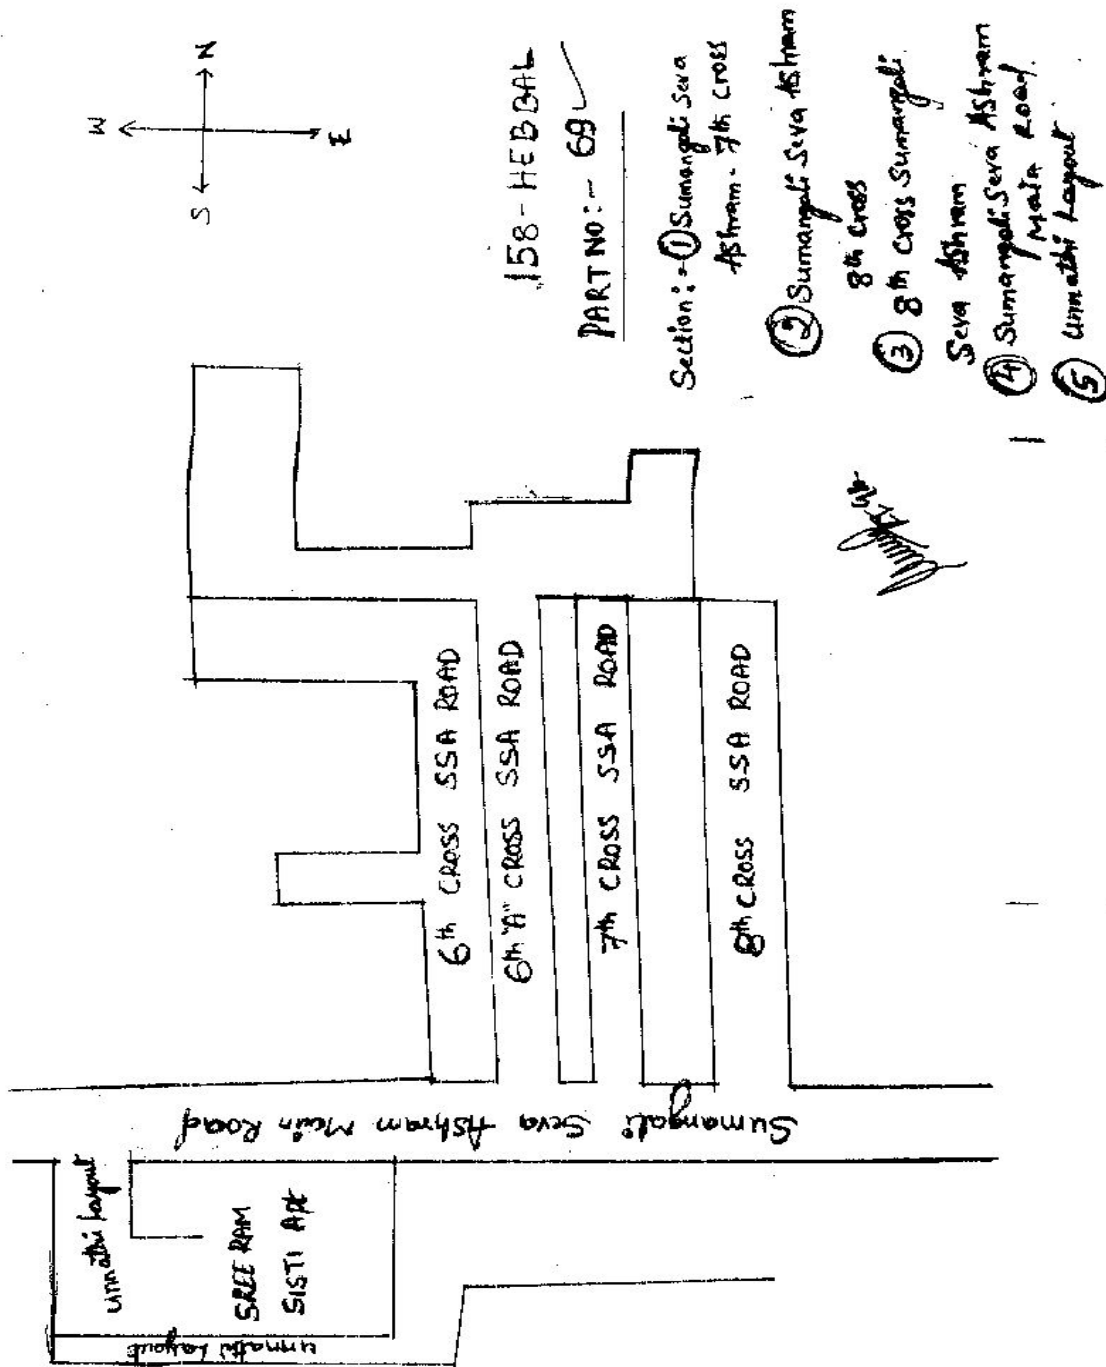 W
S
N
E
158-HEBBAL
PART NO:- 69
Section:- ① Sumangali Seva
Ashram- 7th cross
② Sumangali Seva Ashram
8th cross
③ 8th cross Sumangali
Seva Ashram
④ Sumangali Seva Ashram
Main Road.
⑤ unnathi Layout
6th CROSS SSA ROAD
6th "A" CROSS SSA ROAD
7th CROSS SSA ROAD
8th CROSS SSA ROAD
Sumangali Seva Ashram Main Road
unnathi Layout
SREE RAM
SISTI Apt
unnathi Layout